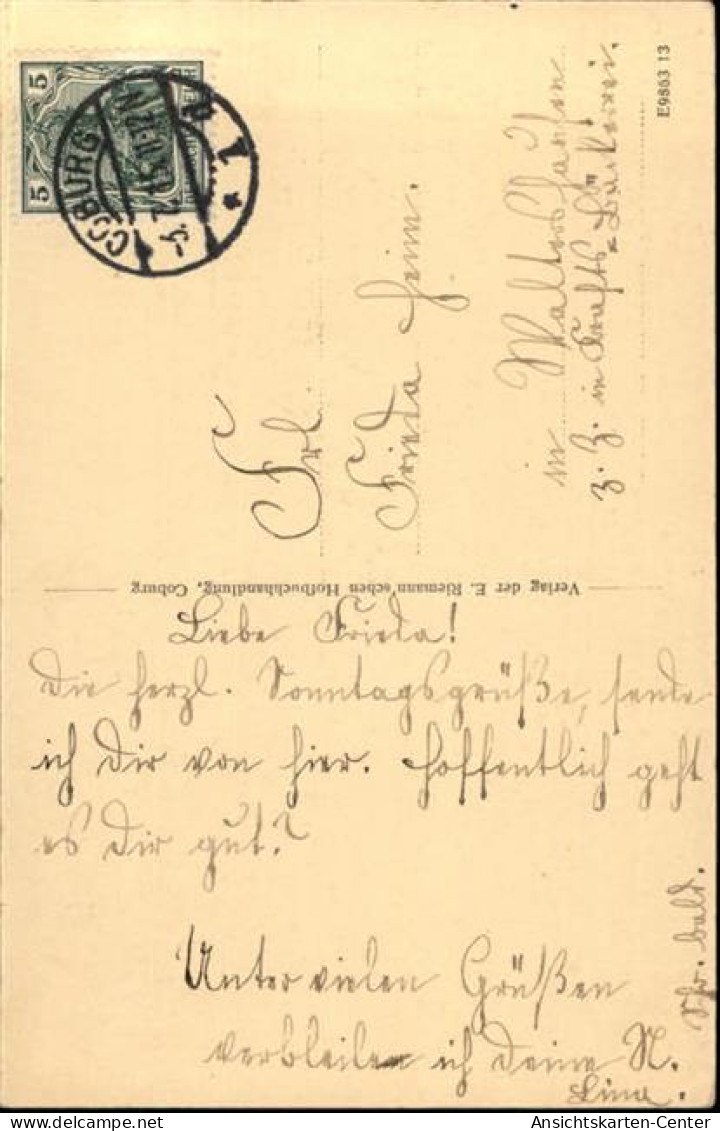 5 5
COBURG
* 1
E9863 13
Frl.
Frieda Heim.
in Waltershausen
z. Z. in Krafts-Bäckerei.
Verlag der E. Riemann'schen Hofbuchhandlung, Coburg
Liebe Frieda!
Die herzl. Sonntagsgrüße, sende
ich Dir von hier. Hoffentlich geht
es Dir gut?
Unter vielen Grüßen
verbleibe ich Deine N.
Lina.
Schr. bald.
Ansichtskarten-Center